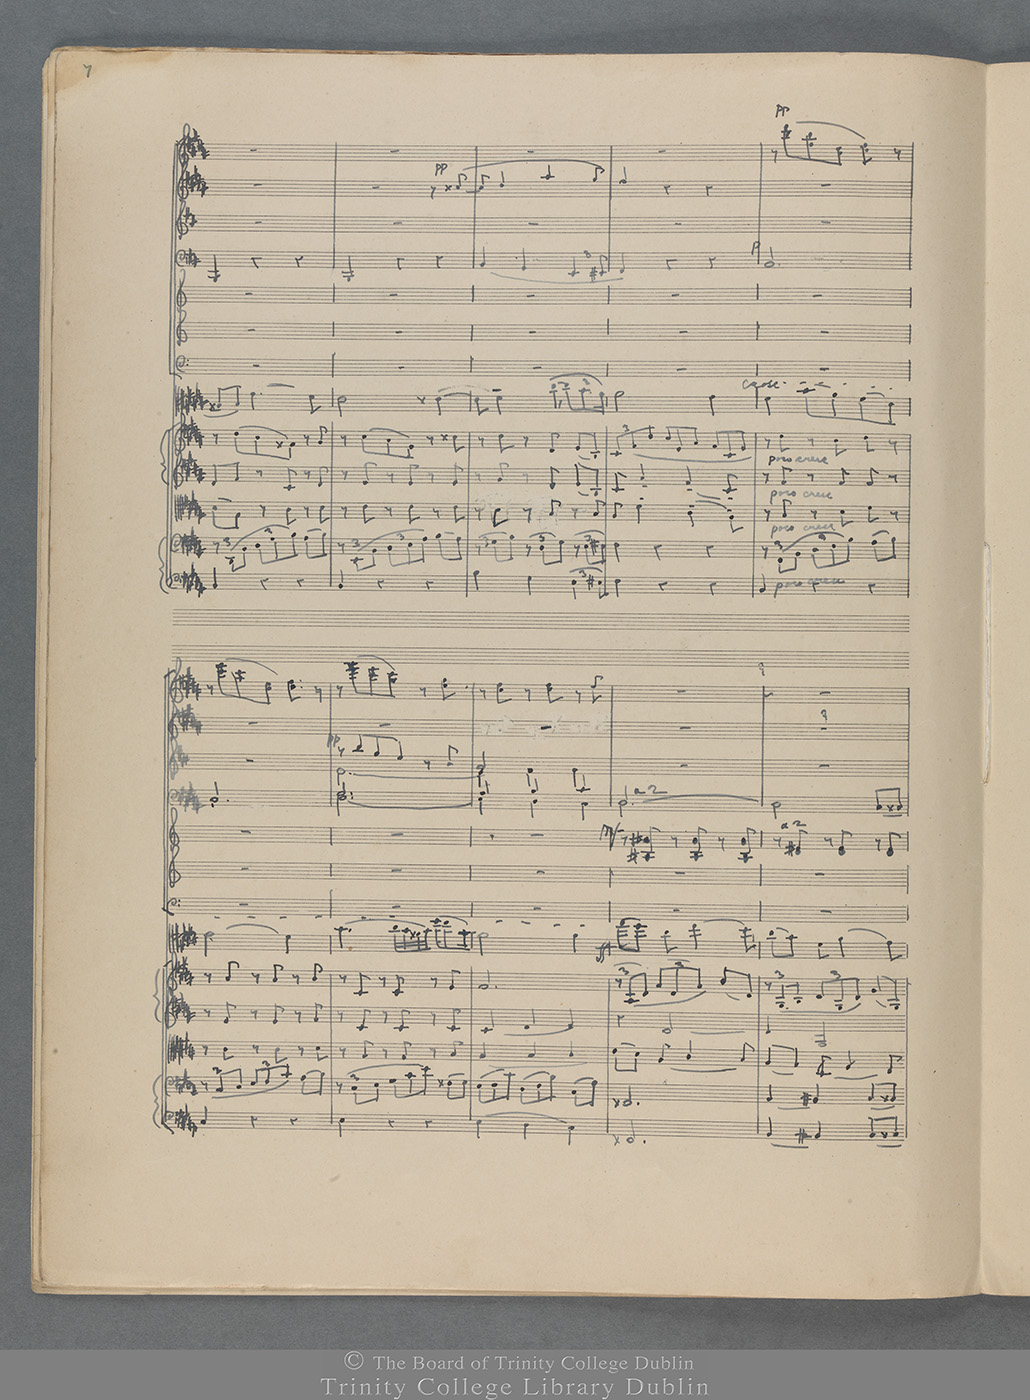 7
pp
pp
3
p
cresc.
3
poco cresc
poco cresc
3
3
3
poco cresc
3
3
poco cresc
pp
a2
mf
a2
3
3
3
3
3
3
© The Board of Trinity College Dublin
Trinity College Library Dublin